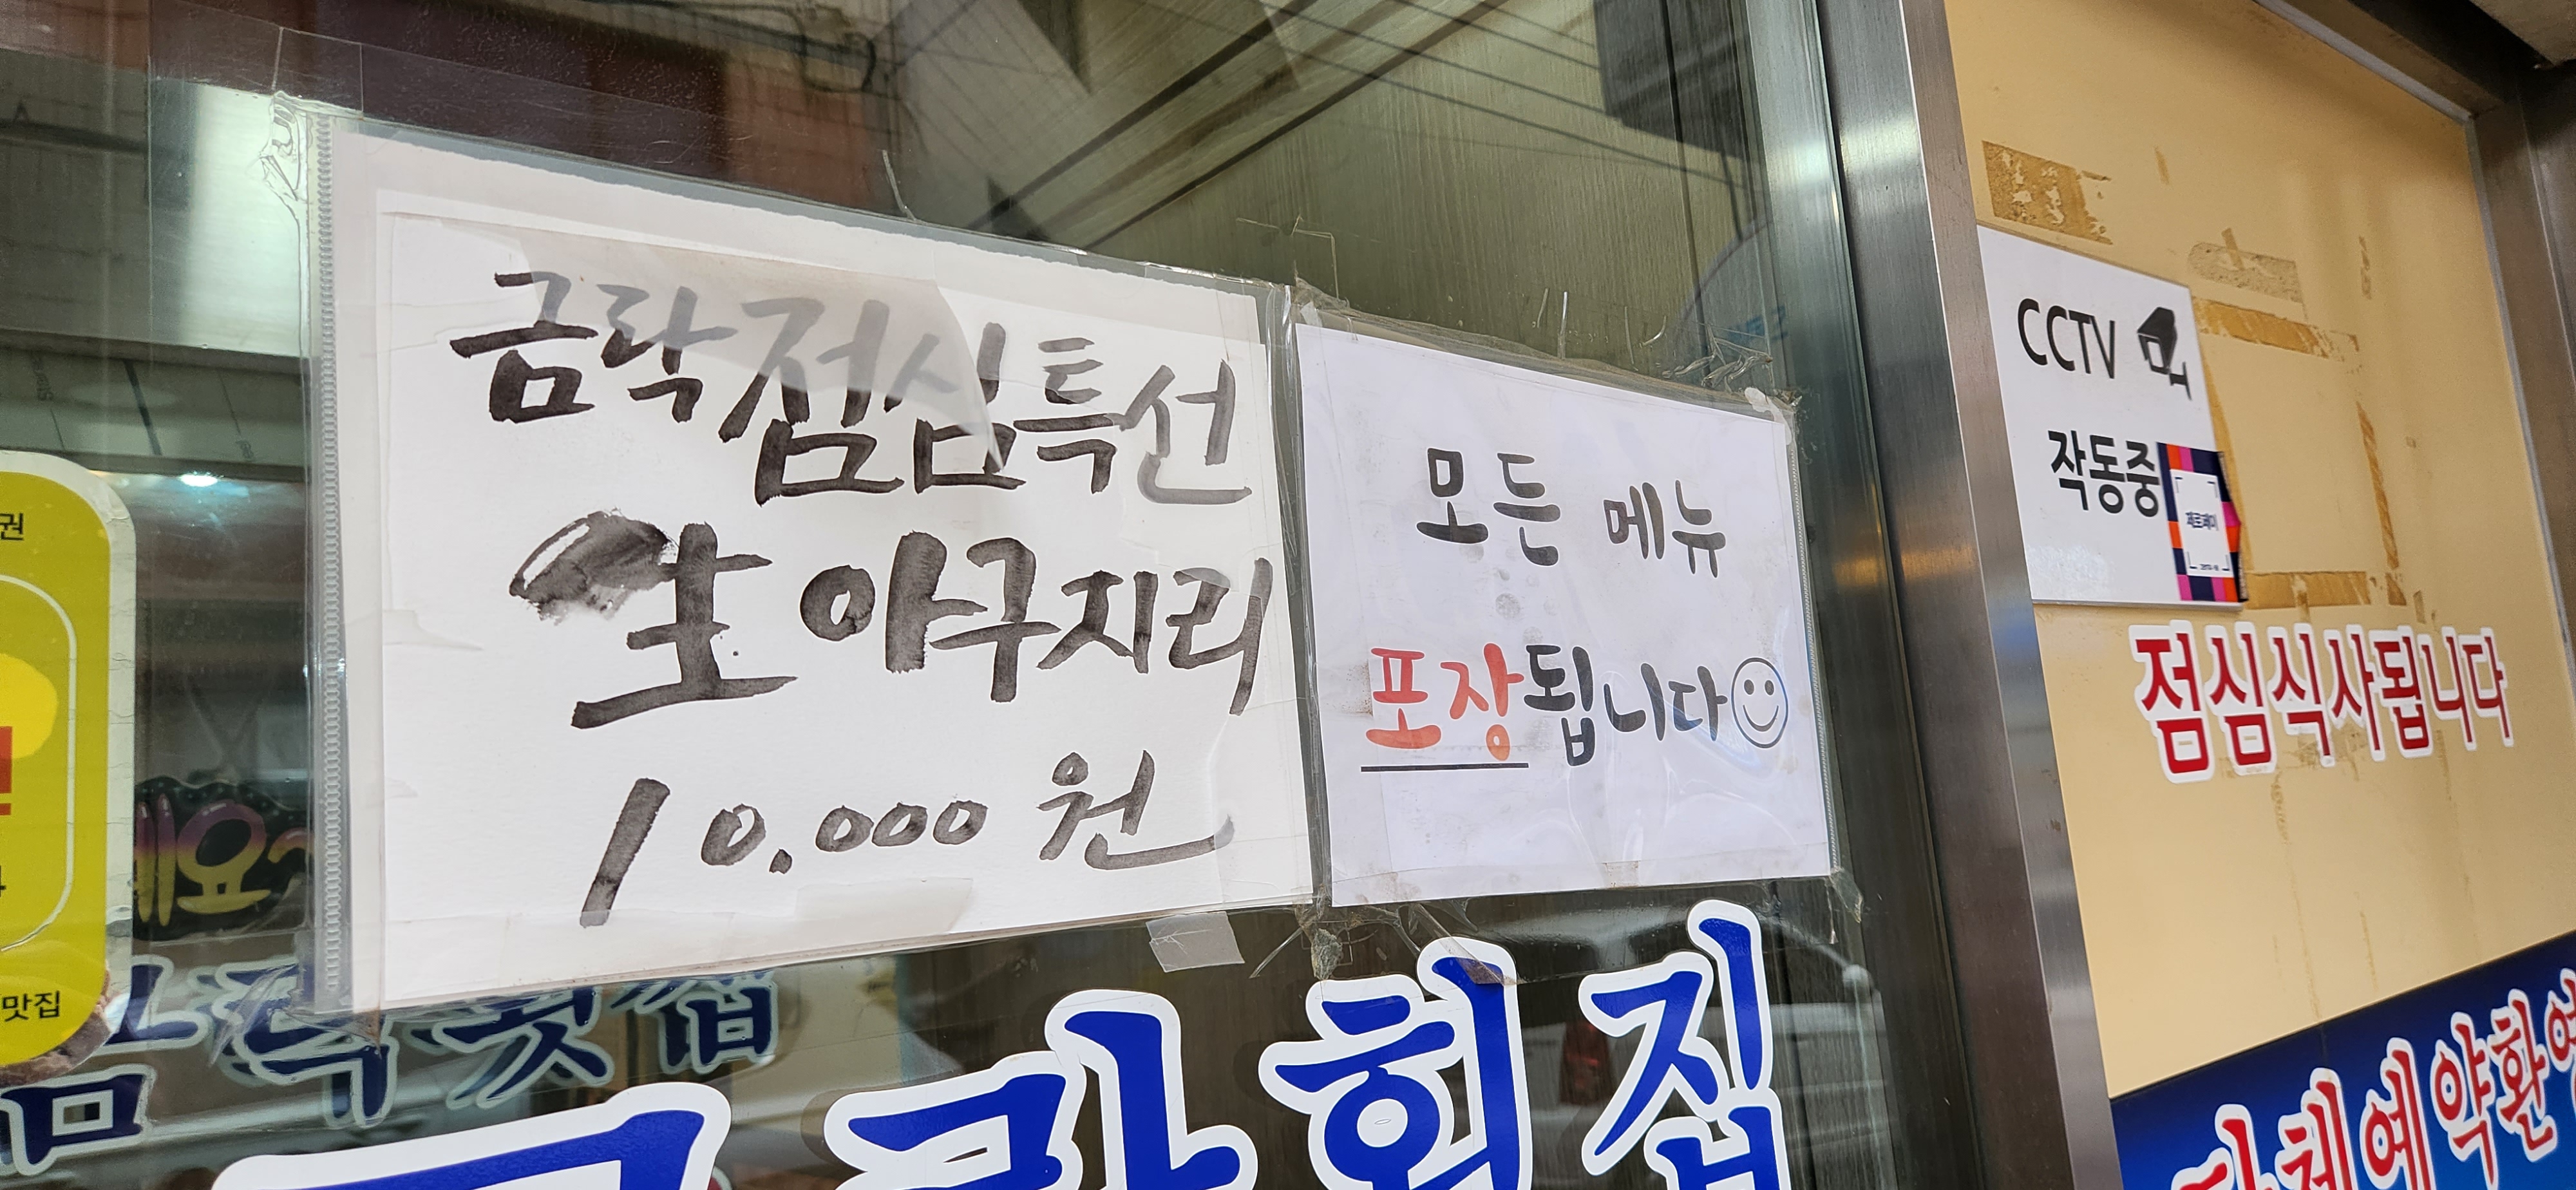 금락점심특선
生 아구지리
10,000 원
모든 메뉴
포장됩니다
CCTV
작동중
제로페이
점심식사됩니다
단체예약환영
금락횟집
맛집